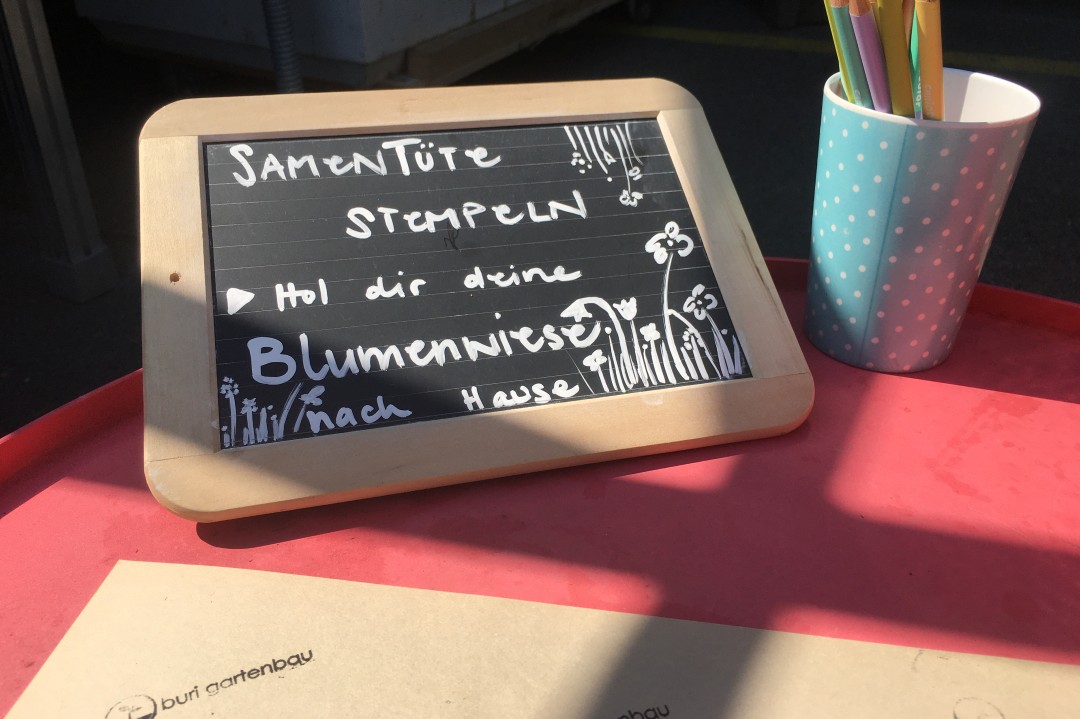 SAMENTÜTE
STEMPELN
Hol dir deine
Blumenwiese
nach Hause
buri gartenbau
nbau